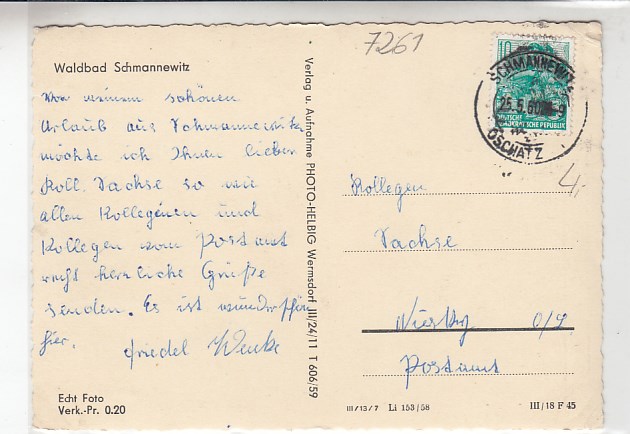 7261
Waldbad Schmannewitz
Von meinem schönen
Urlaub aus Schmannewitz
möchte ich Ihnen lieber
Koll. Sachse so wie
allen Kolleginnen und
Kollegen vom Postamt
recht herzliche Grüße
senden. Es ist wunderschön
hier.
Friedel
Echt Foto
Verk.-Pr. 0.20
Verlag u. Aufnahme PHOTO-HELBIG Wermsdorf III/24/11 T 606/59
10
DEUTSCHE
DEMOKRATISCHE REPUBLIK
SCHMANNEWITZ
25.5.60
OSCHATZ
4,-
Kollegen
Sachse
Niesky O/L
Postamt
III/13/7 Li 153/58
III/18 F 45